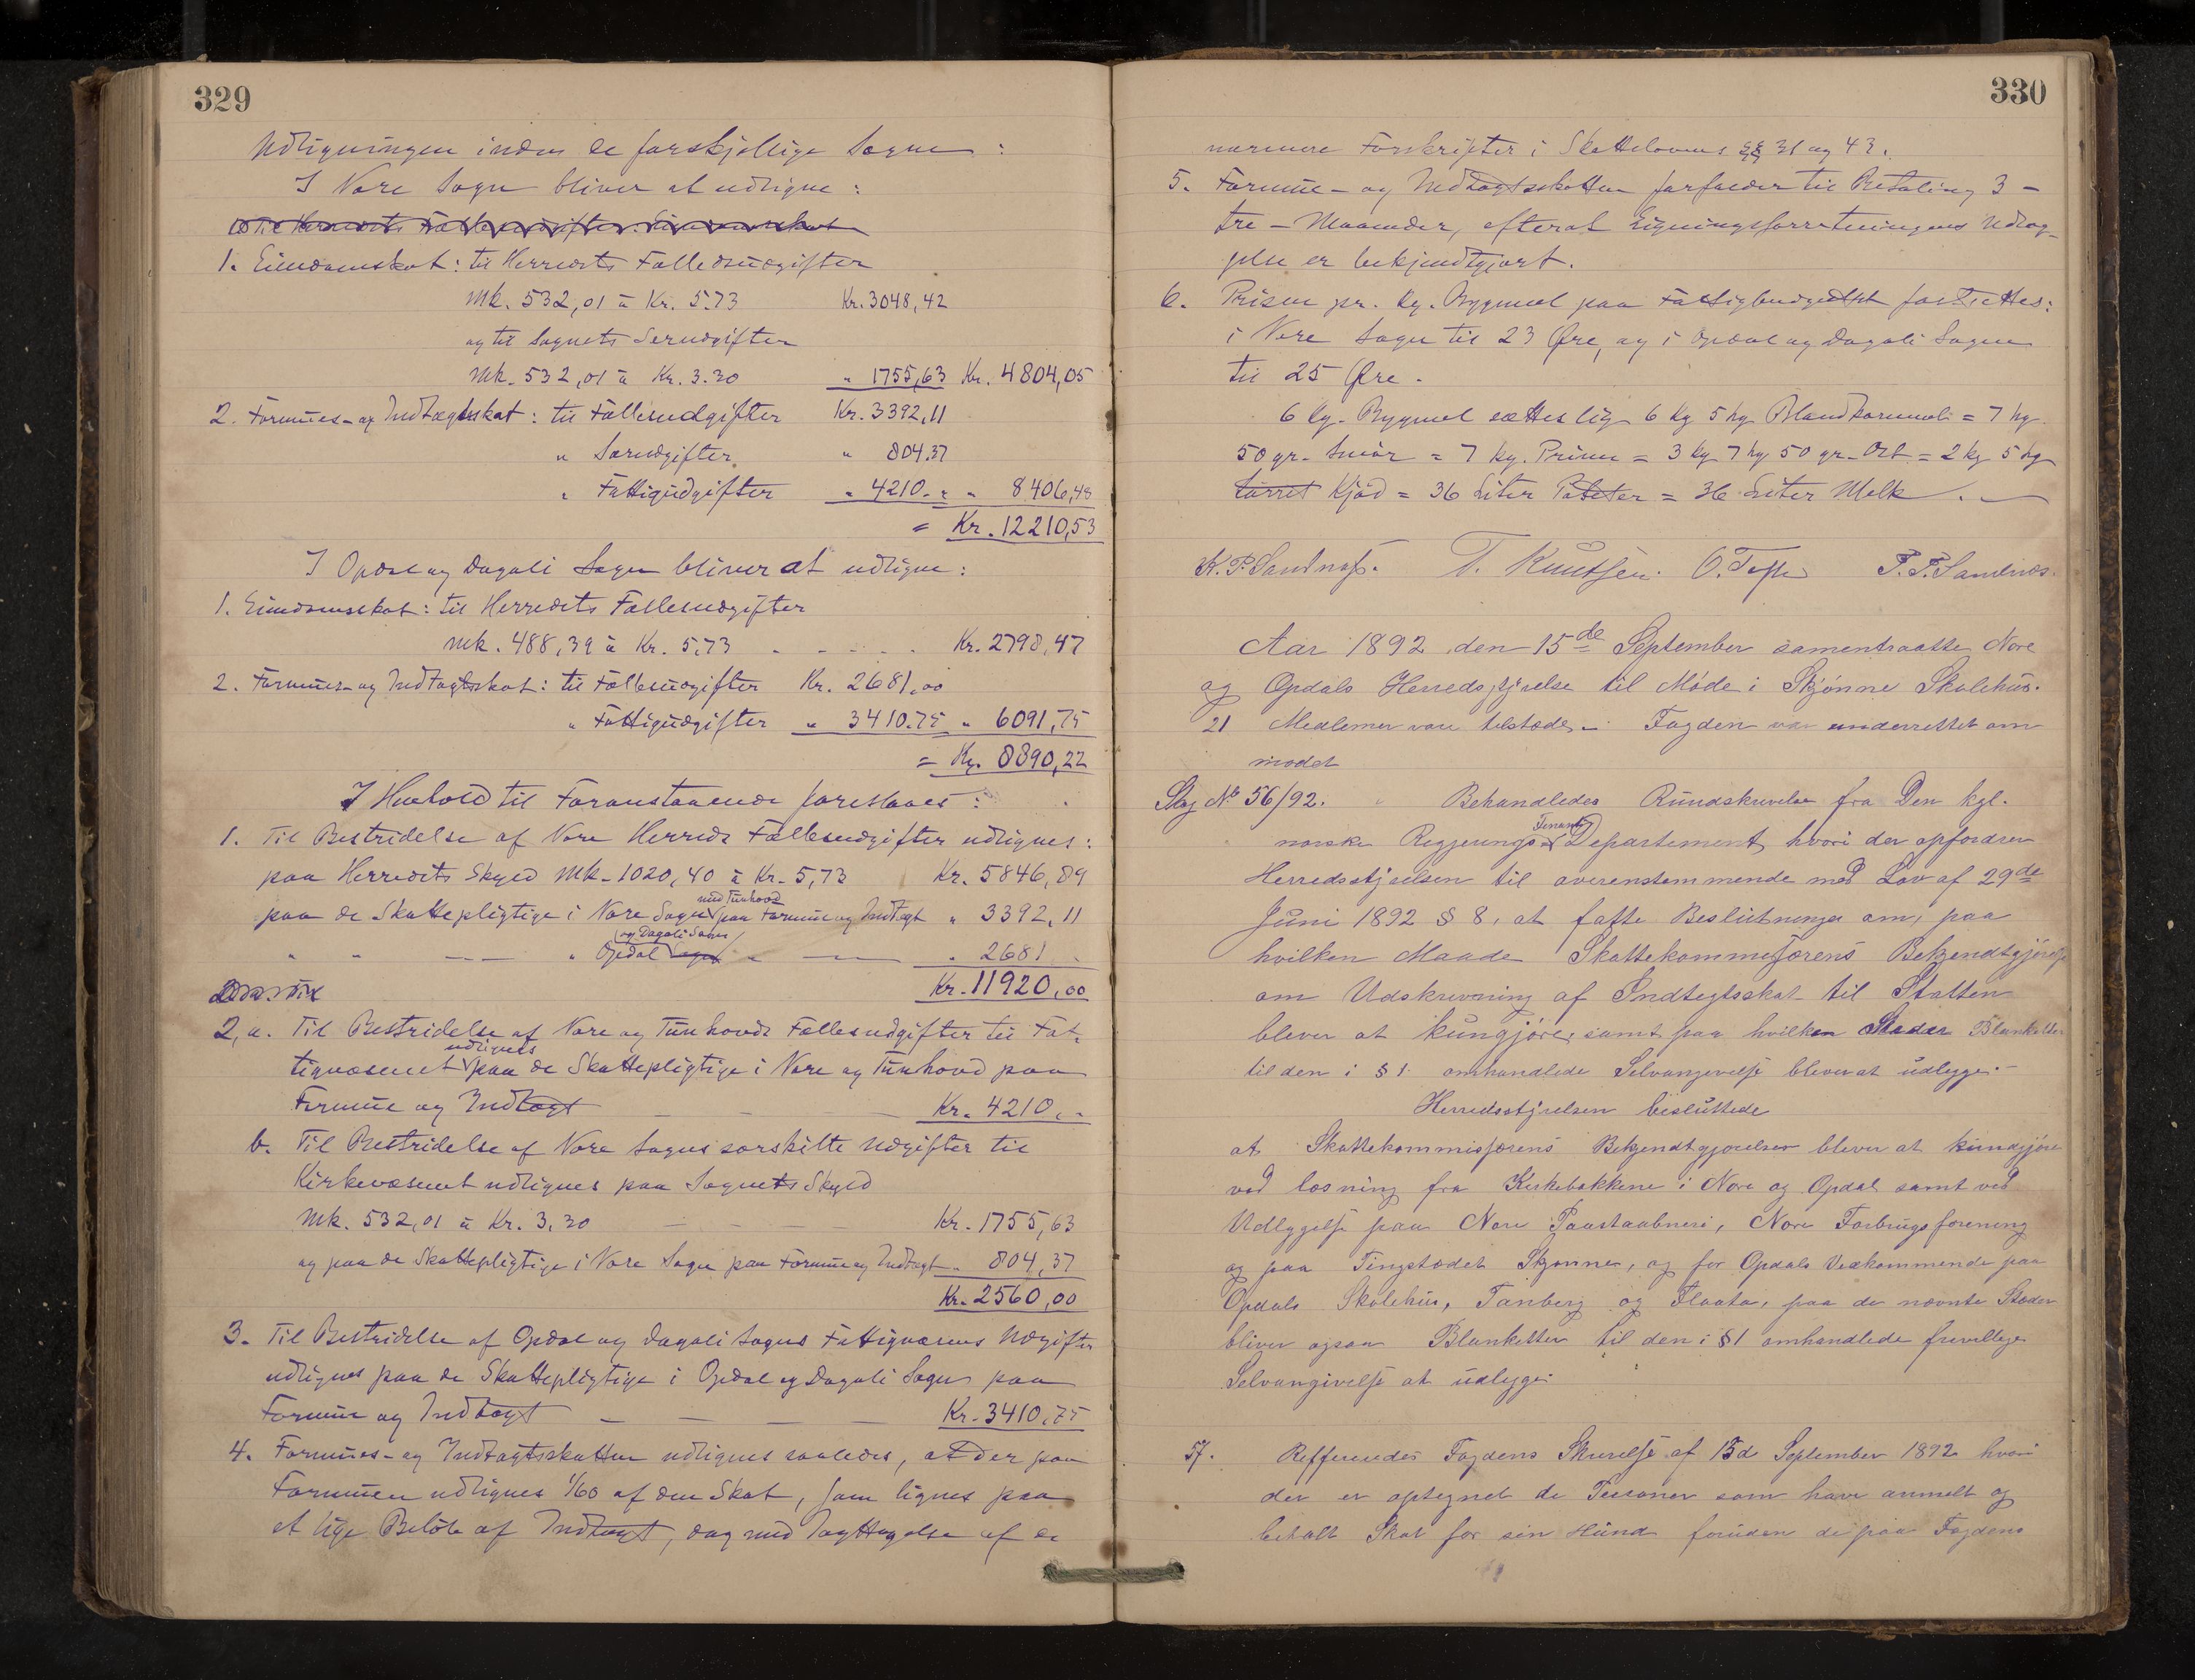 329
Udligningen inden de forskjellige Sogne :
I Nore Sogn bliver at udligne :
1. Eiendomskat : til Herredets Fællesudgifter
Mk. 532,01 à Kr. 5.73 Kr. 3048,42
og til Sognets Særudgifter
Mk. 532,01 à Kr. 3.30 " 1755,63 Kr. 4804,05
2. Formues- og Indtægtsskat : til Fællesudgifter Kr. 3392,11
" Særudgifter " 804.37
" Fattigudgifter " 4210 - " " 8406,48
= Kr. 12210,53
I Opdal og Dagali Sogn bliver at udligne :
1. Eiendomsskat : til Herredets Fællesudgifter
Mk. 488,39 à Kr. 5.73 - - - - Kr. 2798,47
2. Formues- og Indtægtsskat : til Fællesudgifter Kr. 2681,00
" Fattigudgifter " 3410.75 " 6091,75
= Kr. 8890,22
I Henhold til Foranstaaende foreslaaes :
1. Til Bestridelse af Nore Herreds Fællesudgifter udlignes :
paa Herredets Skyld Mk. 1020,40 à Kr. 5,73 Kr. 5846,89
paa de Skattepligtige i Nore Sogn med Tunhovd paa Formue og Indtægt " 3392,11
" " — " Opdal og Dagali Sogn " — " 2681 -
Kr. 11920,00
2, a. Til Bestridelse af Nore og Tunhovds Fællesudgifter til Fat-
tigvæsenet udlignes paa de Skattepligtige i Nore og Tunhovd paa
Formue og Indtægt — — — Kr. 4210. -
b. Til Bestridelse af Nore Sogns særskilte Udgifter til
Kirkevæsenet udlignes paa Sognets Skyld
Mk. 532,01 à Kr. 3,30 — — — Kr. 1755,63
og paa de Skattepligtige i Nore Sogn paa Formue og Indtægt " 804,37
Kr. 2560,00
3. Til Bestridelse af Opdal og Dagali Sogns Fattigvæsens Udgifter
udlignes paa de Skattepligtige i Opdal og Dagali Sogn paa
Formue og Indtægt — — — — Kr. 3410,75
4. Formues- og Indtægtsskatten udlignes saaledes, at der paa
Formuen udlignes 1/60 af den Skat, som lignes paa
et lige Beløb af Indtægt, dog med Iagttagelse af de
330
nærmere Forskrifter i Skattelovens §§ 31 og 43.
5. Formue- og Indtægtsskatten forfalder til Betaling 3 -
tre - Maaneder, efterat Ligningsforretningens Udlæg-
gelse er bekjendtgjort.
6. Prisen pr. Kg. Bygmel paa Fattigbudgettet fastsættes :
i Nore Sogn til 23 Øre, og i Opdal og Dagali Sogne
til 25 Øre.
6 Kg. Bygmel sættes lig 6 Kg 5 hg Blandkornmel = 7 hg
50 gr. Smør = 7 Kg. Prim = 3 Kg 7 hg 50 gr. Ost = 2 kg 5 hg
tørret Kjød = 36 Liter Poteter = 36 Liter Melk.
K. P. Sandnæs. T. Knutsen. O. Tofte T. T. Sandnæs.
Aar 1892 den 15de September samentraatte Nore
og Opdals Herredsstyrelse til Møde i Skjønne Skolehus.
21 Medlemer vare tilstæde. Fogden var underrettet om
mødet
Sag No 56/92. Behandledes Rundskrivelse fra Den kgl.
norske Regjerings Finants Departement, hvori der opfordrer
Herredsstyrelsen til overenstemmende med Lov af 29de
Juni 1892 § 8, at fatte Beslutninger om, paa
hvilken Maade Skattekommisærens Bekjendtgjørelse
om Udskrivning af Indtegtsskat til Statten
bliver at kungjøre, samt paa hvilken Steder Blanketter
til den i § 1 omhandlede Selvangivelse bliver at udlygge. -
Herredsstyrelsen besluttede
at Skattekommisjærens Bekjendtgjørelser bliver at kundgjøre
ved læsning fra Kirkebakkene i Nore og Opdal samt ved
Udlyggelse paa Nore Poståabneri, Nore Forbrugsforening
og paa Tingstedet Skjønne, og for Opdals Vedkommende paa
Opdals Skolehus, Tanberg og Flaata, paa de nævnte Steder
bliver ogsaa Blanketter til den i § 1 omhandlede frivillige
Selvangivelse at udlygge.
57. Reffereredes Fogdens Skrivelse af 13d September 1892 hvori
der er optegnet de Personer som have anmelt og
betalt Skat for sin Hund foruden de paa Fogdens